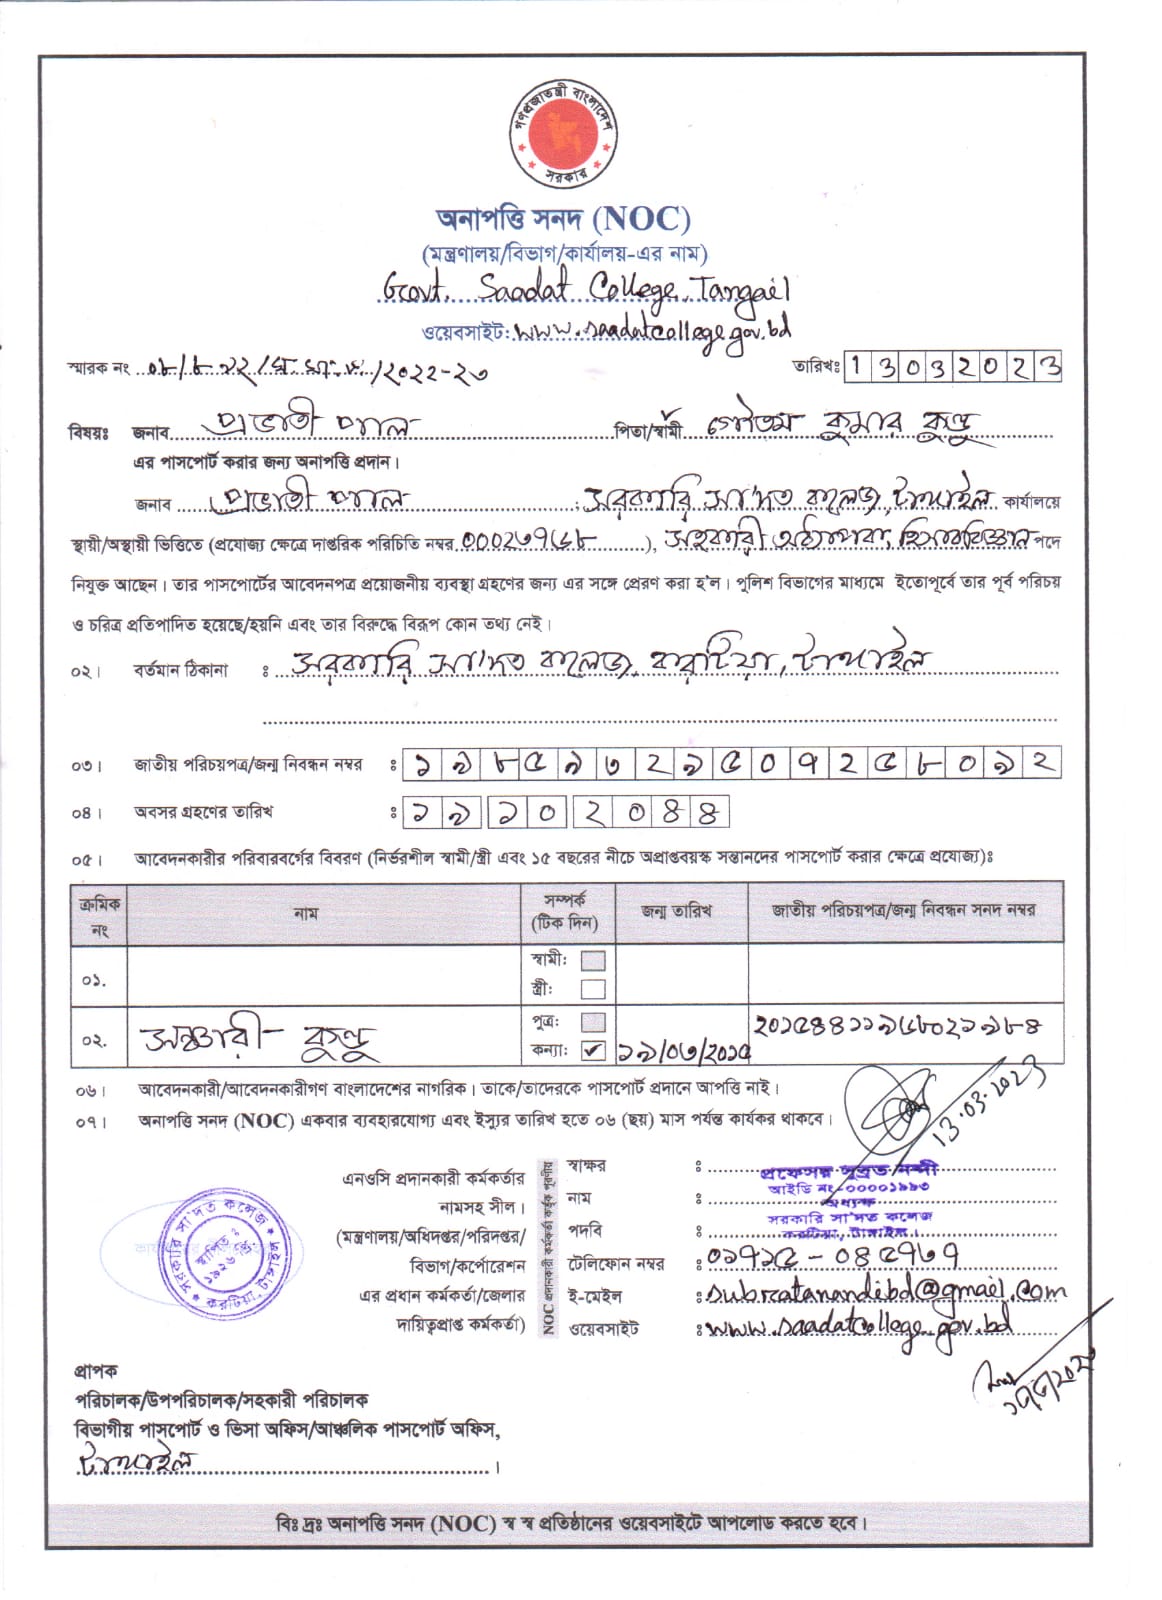 গণপ্রজাতন্ত্রী বাংলাদেশ সরকার
অনাপত্তি সনদ (NOC)
(মন্ত্রণালয়/বিভাগ/কার্যালয়-এর নাম)
Govt. Saadat College, Tangail
ওয়েবসাইট: www.saadatcollege.gov.bd
স্মারক নং /২০২২-২৩ তারিখঃ 13032023
বিষয়ঃ জনাব প্রভাতী পাল পিতা/স্বামী গৌতম কুমার কুন্ডু
এর পাসপোর্ট করার জন্য অনাপত্তি প্রদান।
জনাব প্রভাতী পাল সরকারি সা'দত কলেজ, টাঙ্গাইল কার্যালয়ে
স্থায়ী/অস্থায়ী ভিত্তিতে (প্রযোজ্য ক্ষেত্রে দাপ্তরিক পরিচিতি নম্বর ০০০২৩৭৬৮), সহকারী অধ্যাপক, হিসাববিজ্ঞান পদে
নিযুক্ত আছেন। তার পাসপোর্টের আবেদনপত্র প্রয়োজনীয় ব্যবস্থা গ্রহণের জন্য এর সঙ্গে প্রেরণ করা হ'ল। পুলিশ বিভাগের মাধ্যমে ইতোপূর্বে তার পূর্ব পরিচয়
ও চরিত্র প্রতিপাদিত হয়েছে/হয়নি এবং তার বিরুদ্ধে বিরূপ কোন তথ্য নেই।
০২। বর্তমান ঠিকানা : সরকারি সা'দত কলেজ, করটিয়া, টাঙ্গাইল
০৩। জাতীয় পরিচয়পত্র/জন্ম নিবন্ধন নম্বর : ১৯৮৫৯৩২৯৫০৭২৫৮০৯২
০৪। অবসর গ্রহণের তারিখ : ১৯১০২০৪৪
০৫। আবেদনকারীর পরিবারবর্গের বিবরণ (নির্ভরশীল স্বামী/স্ত্রী এবং ১৫ বছরের নীচে অপ্রাপ্তবয়স্ক সন্তানদের পাসপোর্ট করার ক্ষেত্রে প্রযোজ্য)ঃ
ক্রমিক নং নাম সম্পর্ক (টিক দিন) জন্ম তারিখ জাতীয় পরিচয়পত্র/জন্ম নিবন্ধন সনদ নম্বর
০১. স্বামী:
স্ত্রী:
০২. সঞ্চারী কুন্ডু পুত্র: ২০১৫৪৪১১৯৬৮০২১৯৮৪
কন্যা: ✔ ১৯/০৩/২০১৫
০৬। আবেদনকারী/আবেদনকারীগণ বাংলাদেশের নাগরিক। তাকে/তাদেরকে পাসপোর্ট প্রদানে আপত্তি নাই।
০৭। অনাপত্তি সনদ (NOC) একবার ব্যবহারযোগ্য এবং ইস্যুর তারিখ হতে ০৬ (ছয়) মাস পর্যন্ত কার্যকর থাকবে।
13.03.2023
এনওসি প্রদানকারী কর্মকর্তার
নামসহ সীল।
(মন্ত্রণালয়/অধিদপ্তর/পরিদপ্তর/
বিভাগ/কর্পোরেশন
এর প্রধান কর্মকর্তা/জেলার
দায়িত্বপ্রাপ্ত কর্মকর্তা)
NOC প্রদানকারী কর্মকর্তা কর্তৃক পূরণীয়
স্বাক্ষর :
নাম :
পদবি :
প্রফেসর সুব্রত নন্দী
আইডি নং-০০০০১৯৯৩
অধ্যক্ষ
সরকারি সা'দত কলেজ
করটিয়া, টাঙ্গাইল।
টেলিফোন নম্বর : ০১৭১৫-০৪৫৭৬৭
ই-মেইল : subratanandibd@gmail.com
ওয়েবসাইট : www.saadatcollege.gov.bd
সরকারি সা'দত কলেজ
স্থাপিত : ১৯২৬
করটিয়া, টাঙ্গাইল
প্রাপক
পরিচালক/উপপরিচালক/সহকারী পরিচালক
বিভাগীয় পাসপোর্ট ও ভিসা অফিস/আঞ্চলিক পাসপোর্ট অফিস,
টাঙ্গাইল।
বিঃ দ্রঃ অনাপত্তি সনদ (NOC) স্ব স্ব প্রতিষ্ঠানের ওয়েবসাইটে আপলোড করতে হবে।